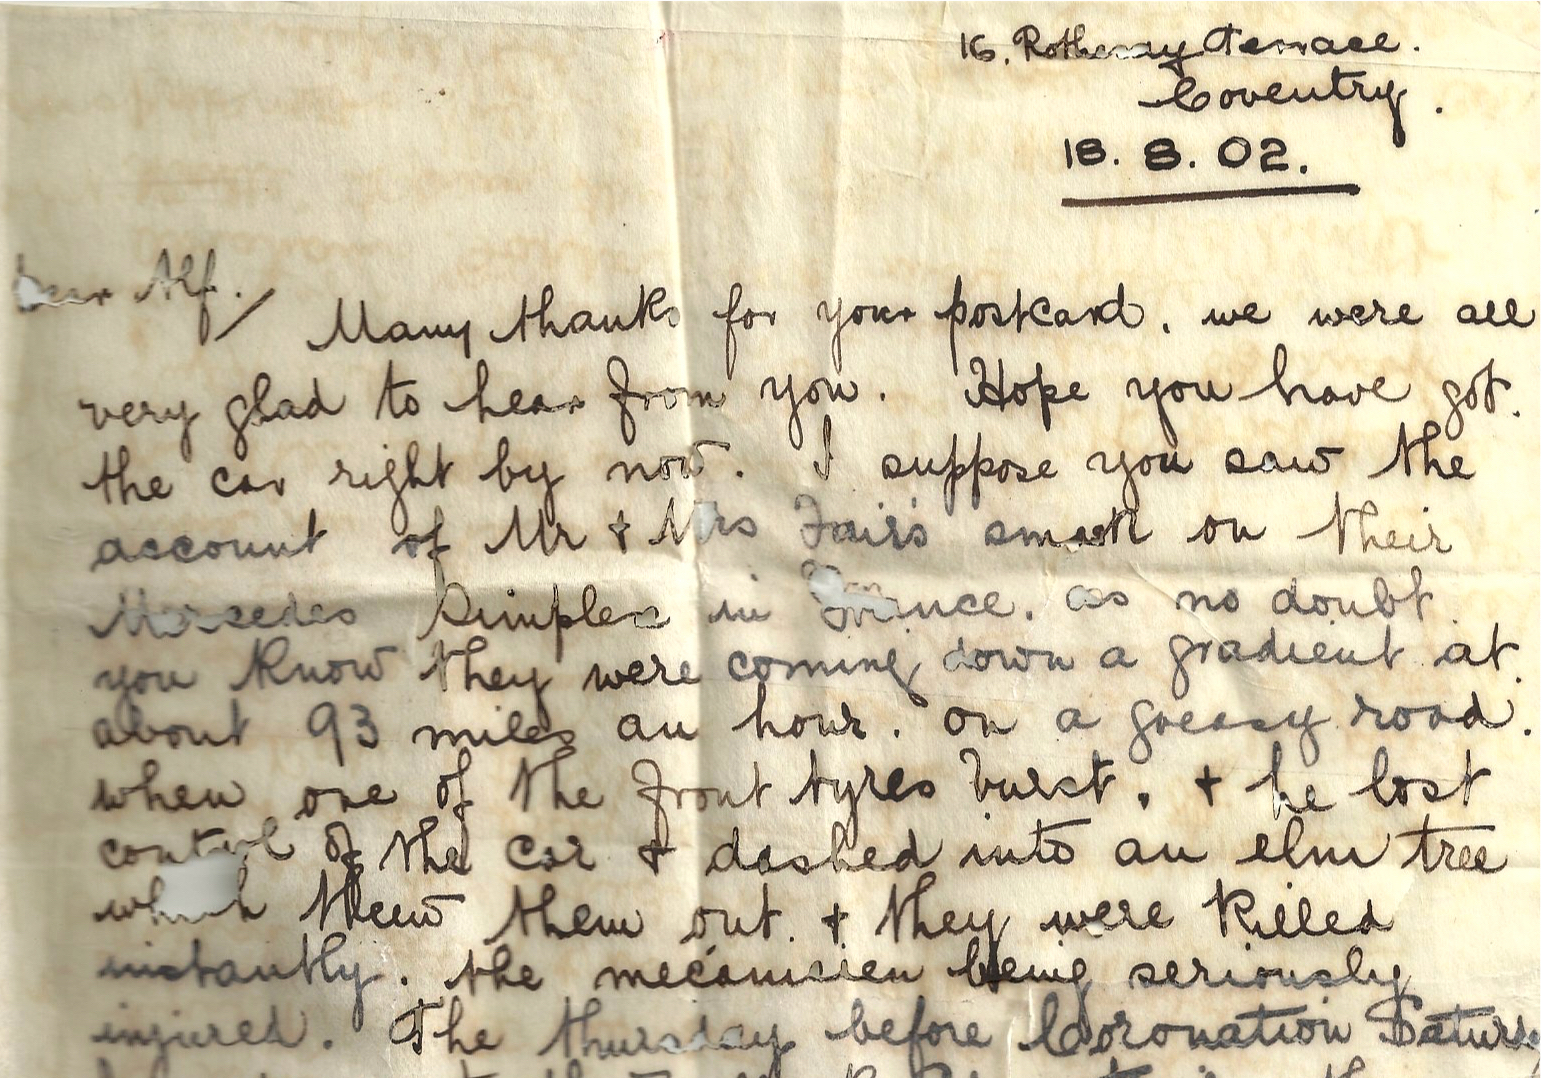 16. Rotheray Terrace.
Coventry.
18. 8. 02.
Dear Alf./
Many thanks for your postcard. we were all
very glad to hear from you. Hope you have got.
the car right by now. I suppose you saw the
account of Mr + Mrs Fair's smash on their
Mercedes Simplex in France. as no doubt.
you know they were coming down a gradient at.
about 93 miles an hour. on a greasy road.
when one of the front tyres burst. + he lost
control of the car + dashed into an elm tree
which threw them out. + they were killed
instantly. the mecanicien being seriously
injured. The thursday before Coronation Saturd